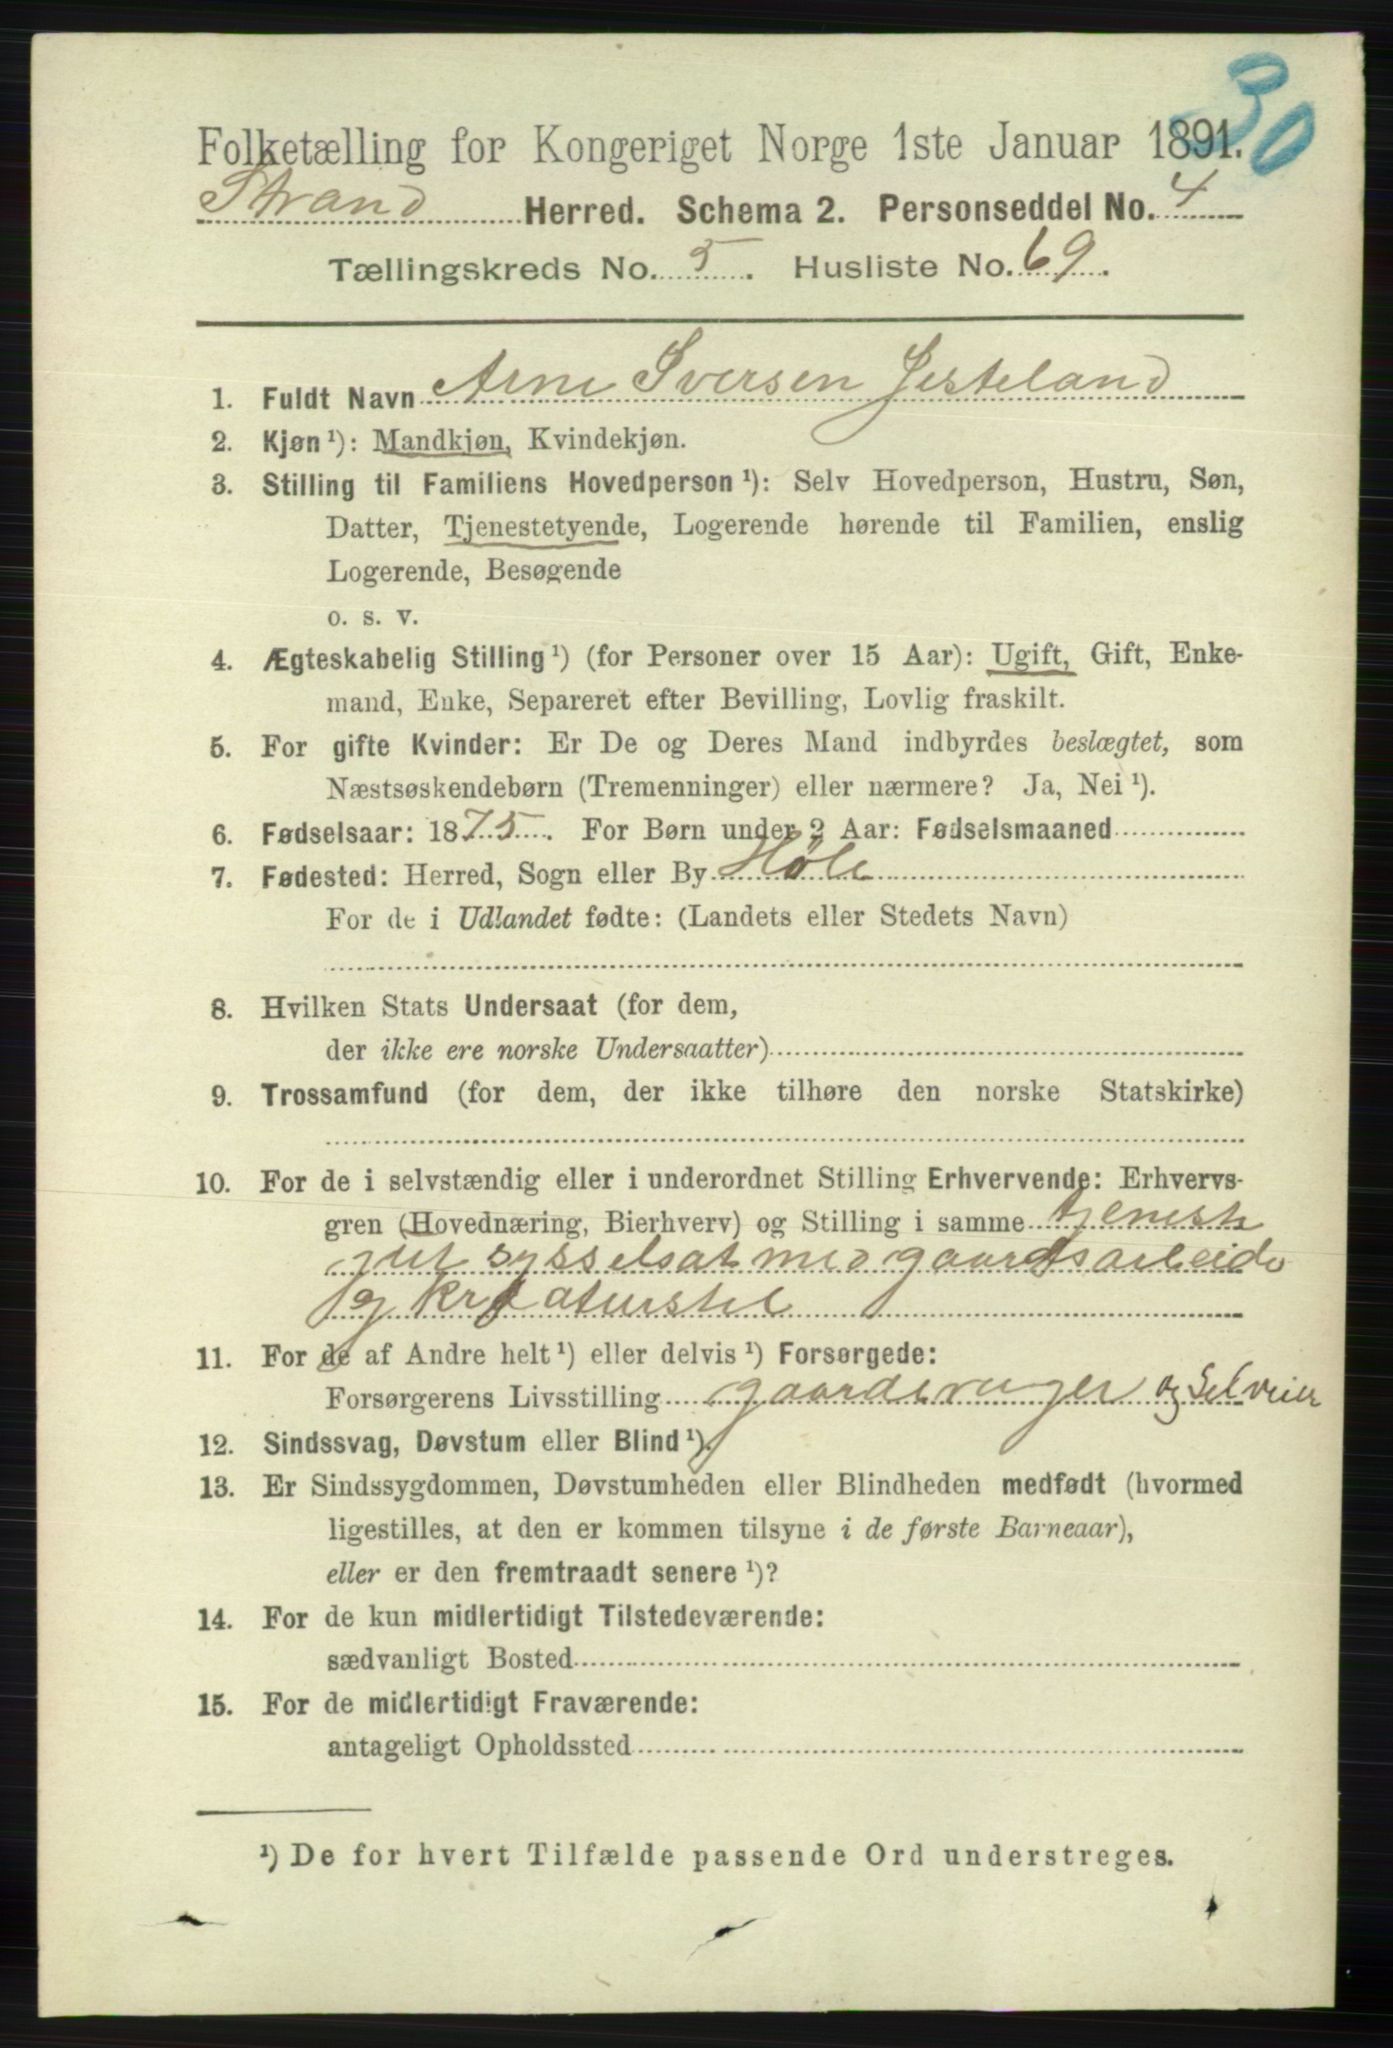 30
Folketælling for Kongeriget Norge 1ste Januar 1891.
Strand Herred. Schema 2. Personseddel No. 4
Tællingskreds No. 5. Husliste No. 69.
1. Fuldt Navn Arne Iversen Jesteland
2. Kjøn ¹): Mandkjøn, Kvindekjøn.
3. Stilling til Familiens Hovedperson ¹): Selv Hovedperson, Hustru, Søn,
Datter, Tjenestetyende, Logerende hørende til Familien, enslig
Logerende, Besøgende
o. s. v.
4. Ægteskabelig Stilling ¹) (for Personer over 15 Aar): Ugift, Gift, Enke-
mand, Enke, Separeret efter Bevilling, Lovlig fraskilt.
5. For gifte Kvinder: Er De og Deres Mand indbyrdes beslægtet, som
Næstsøskendebørn (Tremenninger) eller nærmere? Ja, Nei ¹).
6. Fødselsaar: 1875. For Børn under 2 Aar: Fødselsmaaned
7. Fødested: Herred, Sogn eller By Høle
For de i Udlandet fødte: (Landets eller Stedets Navn)
8. Hvilken Stats Undersaat (for dem,
der ikke ere norske Undersaatter)
9. Trossamfund (for dem, der ikke tilhøre den norske Statskirke)
10. For de i selvstændig eller i underordnet Stilling Erhvervende: Erhvervs-
gren (Hovednæring, Bierhverv) og Stilling i samme tjeneste
sysselsat med gaardsarbeide
og kreaturstel
11. For de af Andre helt ¹) eller delvis ¹) Forsørgede:
Forsørgerens Livsstilling gaardbruger og Selveier
12. Sindssvag, Døvstum eller Blind ¹).
13. Er Sindssygdommen, Døvstumheden eller Blindheden medfødt (hvormed
ligestilles, at den er kommen tilsyne i de første Barneaar),
eller er den fremtraadt senere ¹)?
14. For de kun midlertidigt Tilstedeværende:
sædvanligt Bosted
15. For de midlertidigt Fraværende:
antageligt Opholdssted
¹) De for hvert Tilfælde passende Ord understreges.